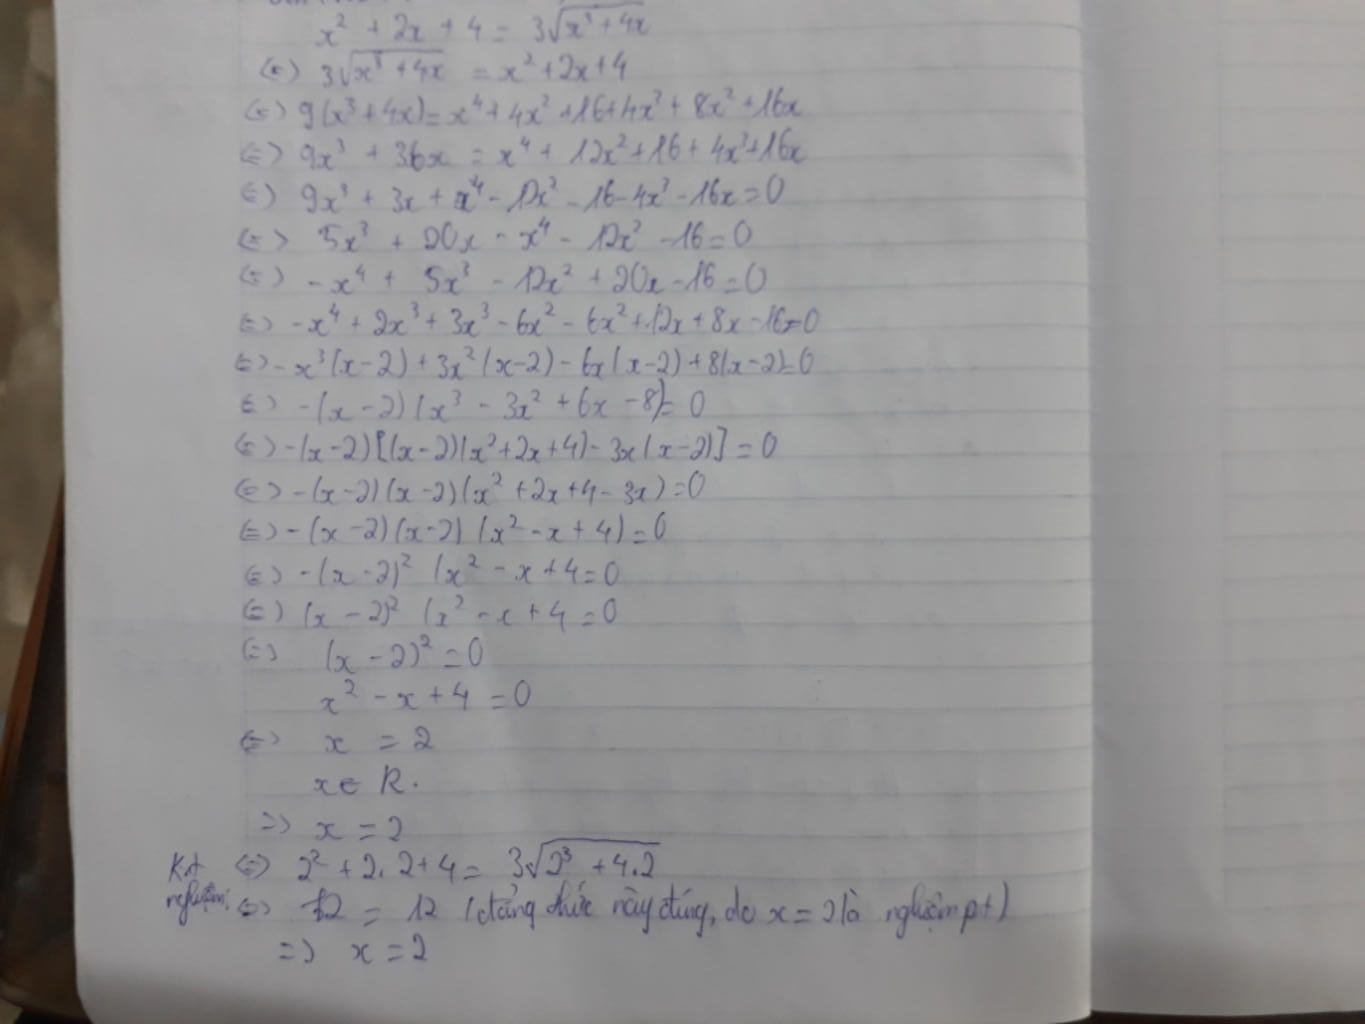 x² + 2x + 4 = 3√(x³ + 4x)
(=) 3√(x³ + 4x) = x² + 2x + 4
(=) 9(x³ + 4x) = x⁴ + 4x² + 16 + 4x³ + 8x² + 16x
(=) 9x³ + 36x = x⁴ + 12x² + 16 + 4x³ + 16x
(=) 9x³ + 3x + x⁴ - 12x² - 16 - 4x³ - 16x = 0
(=) 5x³ + 20x - x⁴ - 12x² - 16 = 0
(=) - x⁴ + 5x³ - 12x² + 20x - 16 = 0
(=) - x⁴ + 2x³ + 3x³ - 6x² - 6x² + 12x + 8x - 16 = 0
(=) - x³(x - 2) + 3x²(x - 2) - 6x(x - 2) + 8(x - 2) = 0
(=) - (x - 2)(x³ - 3x² + 6x - 8) = 0
(=) - (x - 2)[(x - 2)(x² + 2x + 4) - 3x(x - 2)] = 0
(=) - (x - 2)(x - 2)(x² + 2x + 4 - 3x) = 0
(=) - (x - 2)(x - 2)(x² - x + 4) = 0
(=) - (x - 2)² (x² - x + 4 = 0
(=) (x - 2)² (x² - x + 4 = 0
(=) (x - 2)² = 0
x² - x + 4 = 0
(=) x = 2
x ∈ R.
=> x = 2
(=) 2² + 2.2 + 4 = 3√(2³ + 4.2)
nghiệm: (=) 12 = 12 (đẳng thức này đúng, do x = 2 là nghiệm pt)
=> x = 2